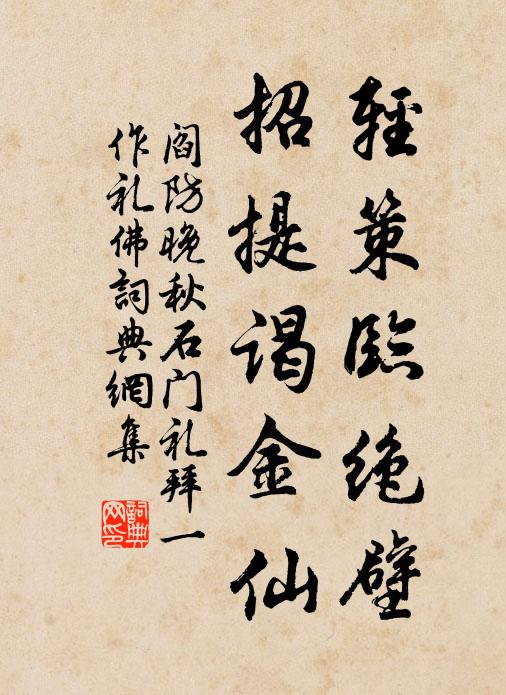 輕策臨绝壁
招提谒金仙
阎防晚秋石门礼拜一
作礼佛詞典網集
詞典
网印